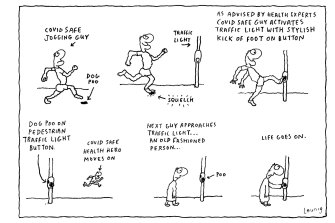 COVID SAFE
JOGGING GUY
DOG
POO
TRAFFIC
LIGHT
SQUELCH
AS ADVISED BY HEALTH EXPERTS
COVID SAFE GUY ACTIVATES
TRAFFIC LIGHT WITH STYLISH
KICK OF FOOT ON BUTTON
DOG POO ON
PEDESTRIAN
TRAFFIC LIGHT
BUTTON.
COVID SAFE
HEALTH HERO
MOVES ON
NEXT GUY APPROACHES
TRAFFIC LIGHT...
AN OLD FASHIONED
PERSON...
POO
LIFE GOES ON.
Leunig